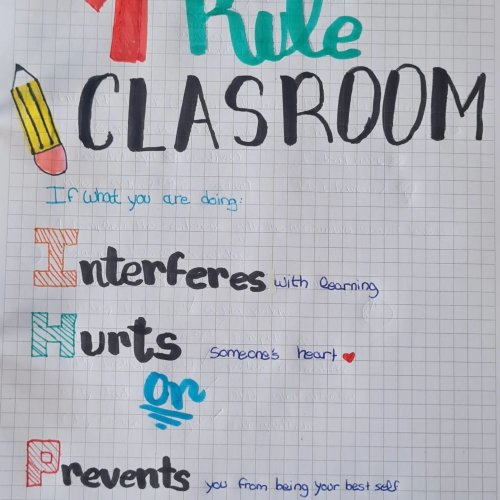 1 Rule
CLASROOM
If what you are doing:
Interferes with learning
Hurts someone's heart
or
Prevents you from being your best self